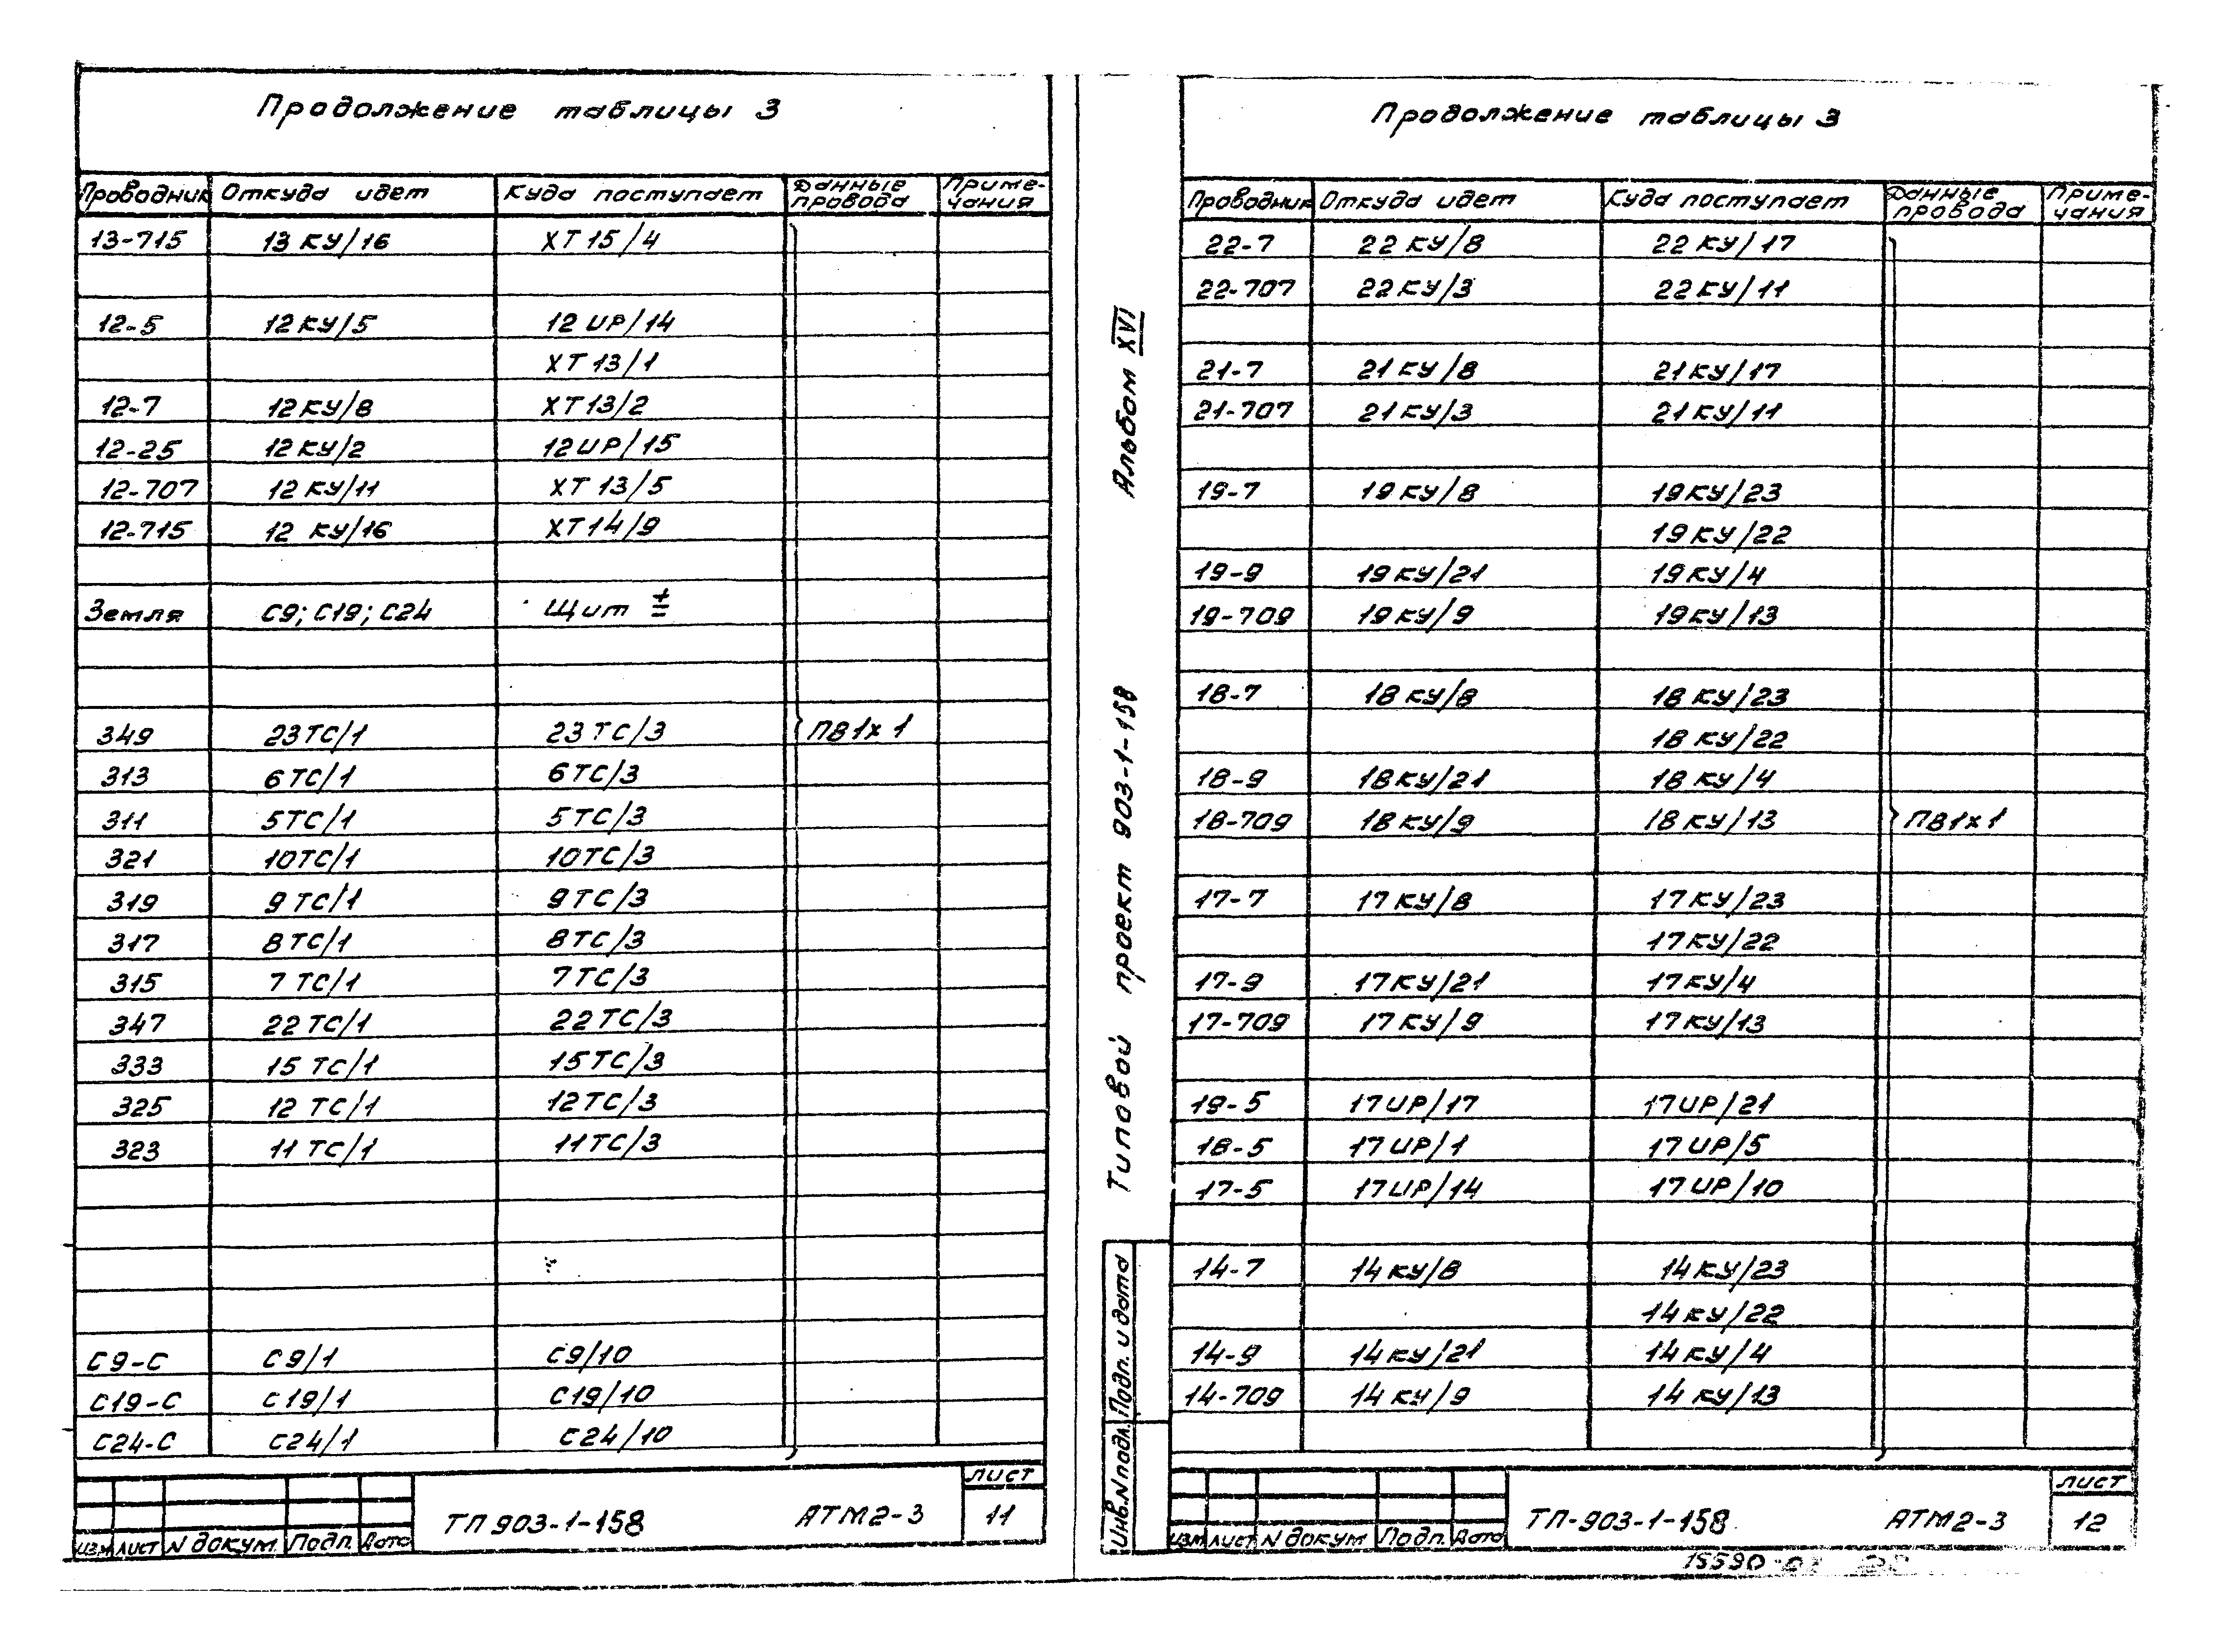 Продолжение таблицы 3
Проводник Откуда идет Куда поступает Данные провода Приме-чания
13-715 13КУ/16 ХТ15/4
12-5 12КУ/5 12UP/14
ХТ13/1
12-7 12КУ/8 ХТ13/2
12-25 12КУ/2 12UP/15
12-707 12КУ/11 ХТ13/5
12-715 12 КУ/16 ХТ14/9
Земля С9; С19; С24 Щит
349 23ТС/1 23ТС/3 ПВ1х1
313 6ТС/1 6ТС/3
311 5ТС/1 5ТС/3
321 10ТС/1 10ТС/3
319 9ТС/1 9ТС/3
317 8ТС/1 8ТС/3
315 7ТС/1 7ТС/3
347 22ТС/1 22ТС/3
333 15ТС/1 15ТС/3
325 12ТС/1 12ТС/3
323 11ТС/1 11ТС/3
С9-С С9/1 С9/10
С19-С С19/1 С19/10
С24-С С24/1 С24/10
Изм Лист N докум. Подп. Дата
ТП 903-1-158 АТМ2-3
Лист
11
Альбом XVI
Типовой проект 903-1-158
Подп. и дата
Инв.Nподл.
Продолжение таблицы 3
Проводник Откуда идет Куда поступает Данные провода Приме-чания
22-7 22КУ/8 22КУ/17
22-707 22КУ/3 22КУ/11
21-7 21КУ/8 21КУ/17
21-707 21КУ/3 21КУ/11
19-7 19КУ/8 19КУ/23
19КУ/22
19-9 19КУ/21 19КУ/4
19-709 19КУ/9 19КУ/13
18-7 18КУ/8 18КУ/23
18КУ/22
18-9 18КУ/21 18КУ/4
18-709 18КУ/9 18КУ/13 ПВ1х1
17-7 17КУ/8 17КУ/23
17КУ/22
17-9 17КУ/21 17КУ/4
17-709 17КУ/9 17КУ/13
19-5 17UP/17 17UP/21
18-5 17UP/1 17UP/5
17-5 17UP/14 17UP/10
14-7 14КУ/8 14КУ/23
14КУ/22
14-9 14КУ/21 14КУ/4
14-709 14КУ/9 14КУ/13
Изм Лист N докум Подп. Дата
ТП-903-1-158 АТМ2-3
Лист
12
15590